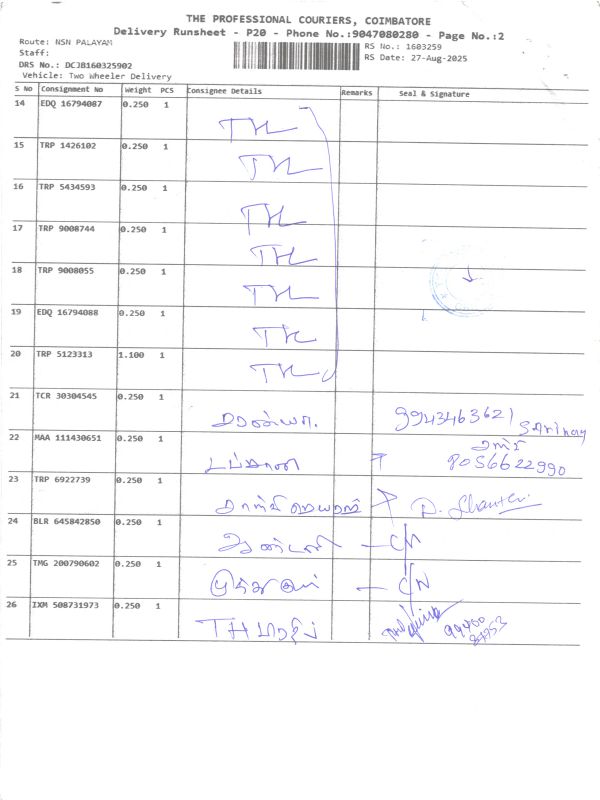 THE PROFESSIONAL COURIERS, COIMBATORE
Delivery Runsheet - P20 - Phone No.:9047080280 - Page No.:2
Route: NSN PALAYAM
RS No.: 1603259
Staff:
RS Date: 27-Aug-2025
DRS No.: DCJB160325902
Vehicle: Two Wheeler Delivery
S No Consignment No Weight PCS Consignee Details Remarks Seal & Signature
14 EDQ 16794087 0.250 1
TH
15 TRP 1426102 0.250 1
TH
16 TRP 5434593 0.250 1
TH
17 TRP 9008744 0.250 1
TH
18 TRP 9008055 0.250 1
TH
19 EDQ 16794088 0.250 1
TH
20 TRP 5123313 1.100 1
TH
21 TCR 30304545 0.250 1
சரண்யா. 9943463621
22 MAA 111430651 0.250 1
8056622990
23 TRP 6922739 0.250 1
24 BLR 645842850 0.250 1
ஆண்டனி - CN
25 TMG 200790602 0.250 1
- CN
26 IXM 508731973 0.250 1
TH